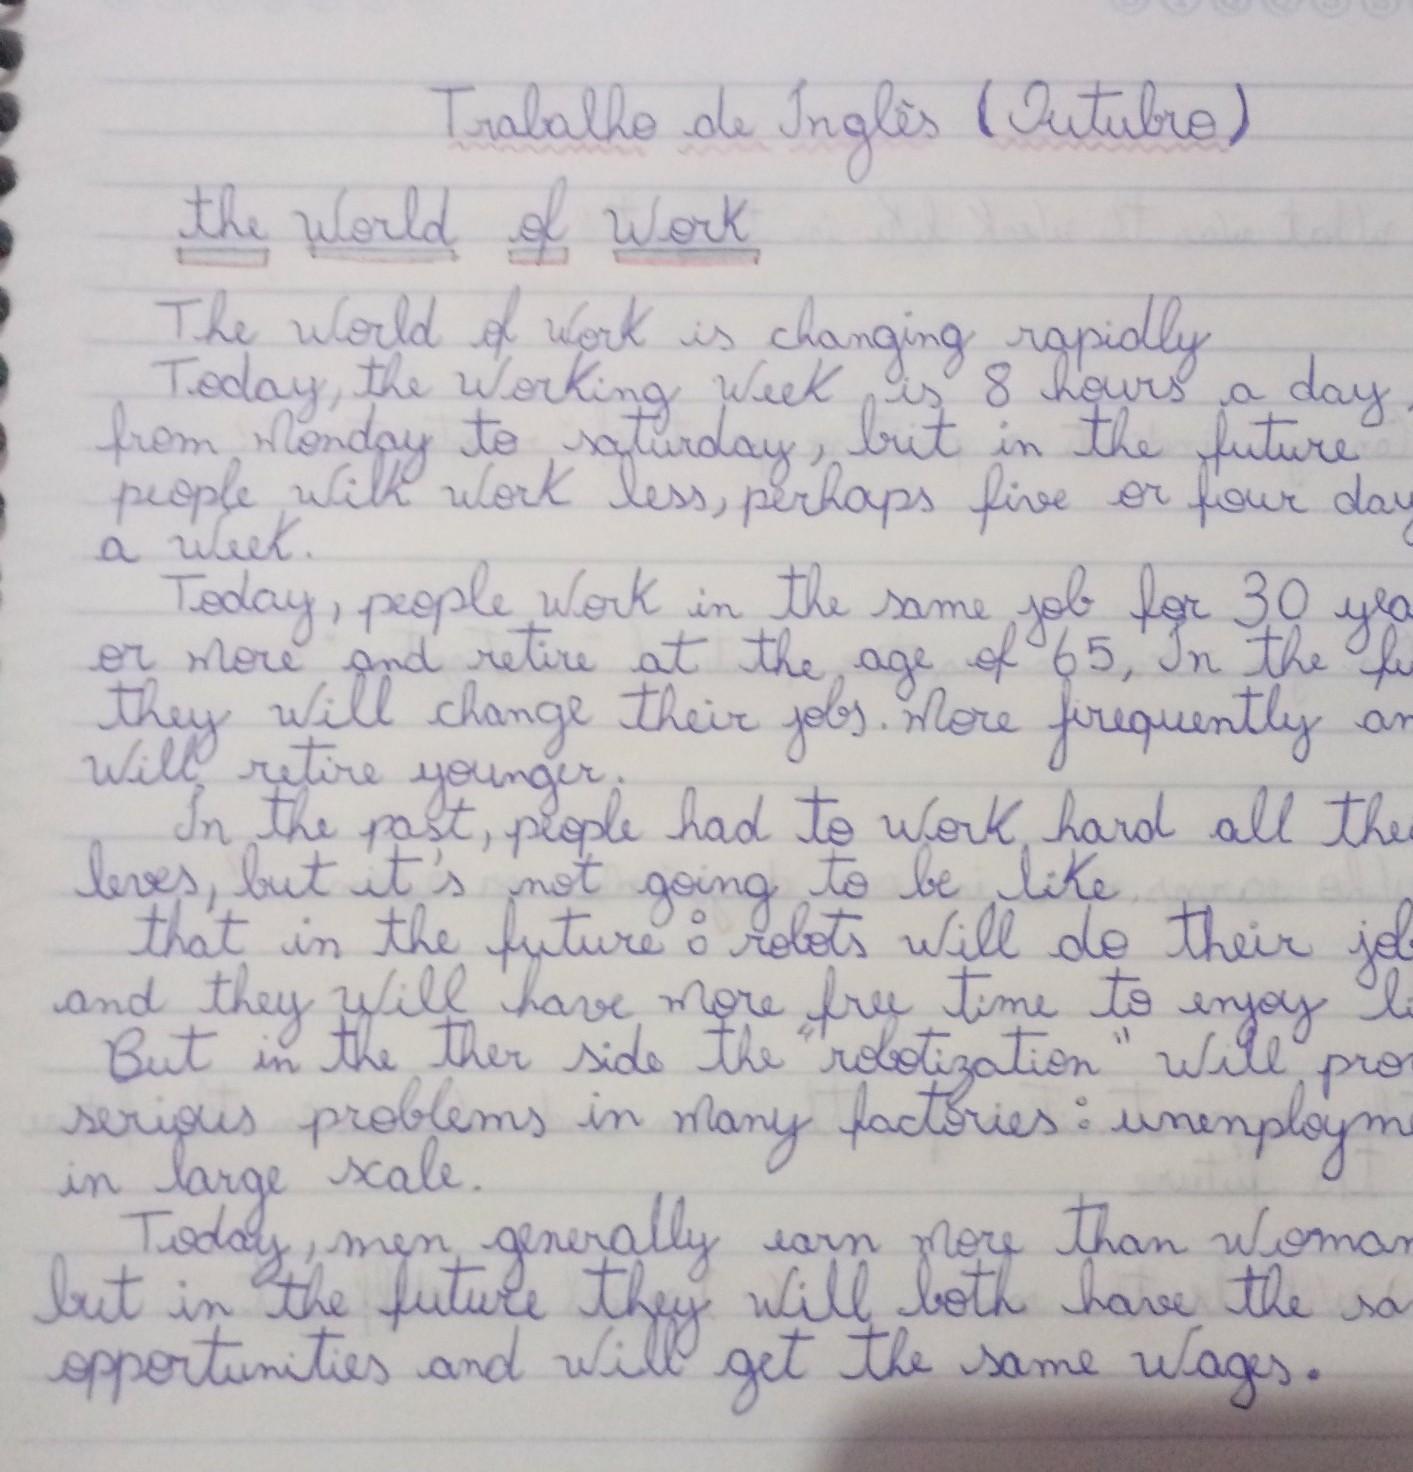 Trabalho de Inglês (Outubro)
the World of Work
The World of Work is changing rapidly
Today, the Working Week is 8 hours a day,
from Monday to saturday, but in the future
people Wilk Work less, perhaps five or four day
a Week.
Today, people Work in the same job for 30 yea
or More and retire at the age of 65, In the fu
they Will change their jobs. More firequently an
Will retire younger.
In the past, people had to Work hard all thei
leves, but it's not going to be like
that in the future: robots Will do their job
and they Will have More free time to enjoy li
But in the ther side the "robotization" Will pro
serious problems in Many factories: unenployme
in large scale.
Today, men generally earn More than Woman
but in the future they Will both have the sa
opportunities and Will get the same Wages.